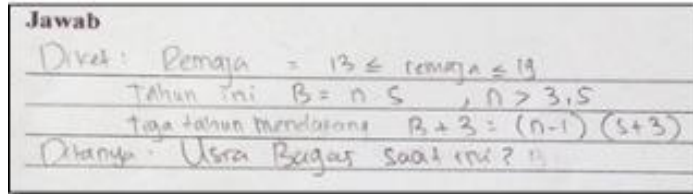 Jawab
Diket : Remaja = 13 ≤ remaja ≤ 19
Tahun ini B = n S , n > 3,5
Tiga tahun mendatang B + 3 = (n-1) (S+3)
Ditanya : Usia Bagas saat ini?